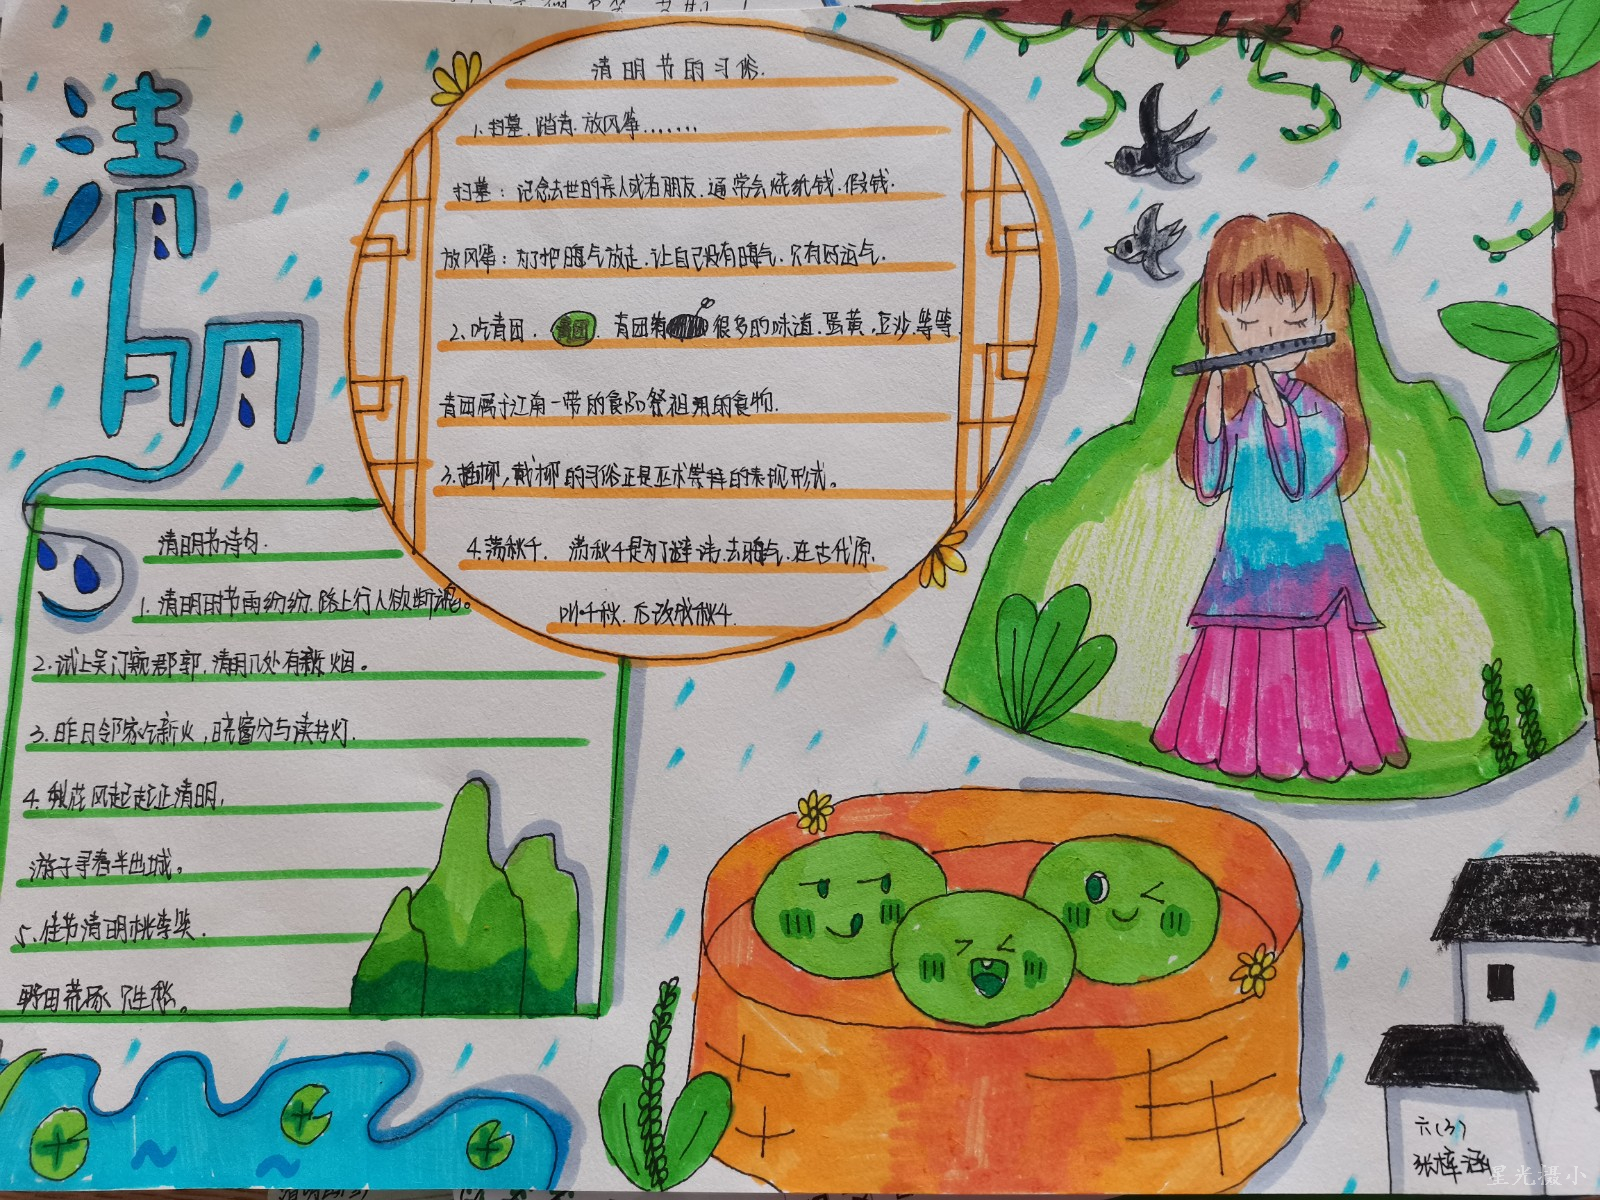 清明
清明节的习俗.
1.扫墓.踏青.放风筝.......
扫墓：记念去世的亲人或者朋友.通常会烧纸钱.假钱.
放风筝：为了把曝气放走.让自己没有曝气.只有好运气.
2.吃青团. 青团. 青团有很多的味道.蛋黄.豆沙.等等.
青团属于江南一带的食品祭祖用的食物.
3.插柳,戴柳的习俗正是巫术崇拜的表现形式。
4.荡秋千. 荡秋千是为了辟讳.去曝气.在古代原.
叫千秋.后改成秋千.
清明节诗句.
1.清明时节雨纷纷.路上行人欲断魂。
2.试上吴门窥郡郭.清明几处有新烟。
3.昨日邻家乞新火,晓窗分与读书灯.
4.梨花风起正清明.
游子寻春半出城。
5.佳节清明桃李笑.
野田荒冢只生愁。
六(3)
张梓涵
星光摄小